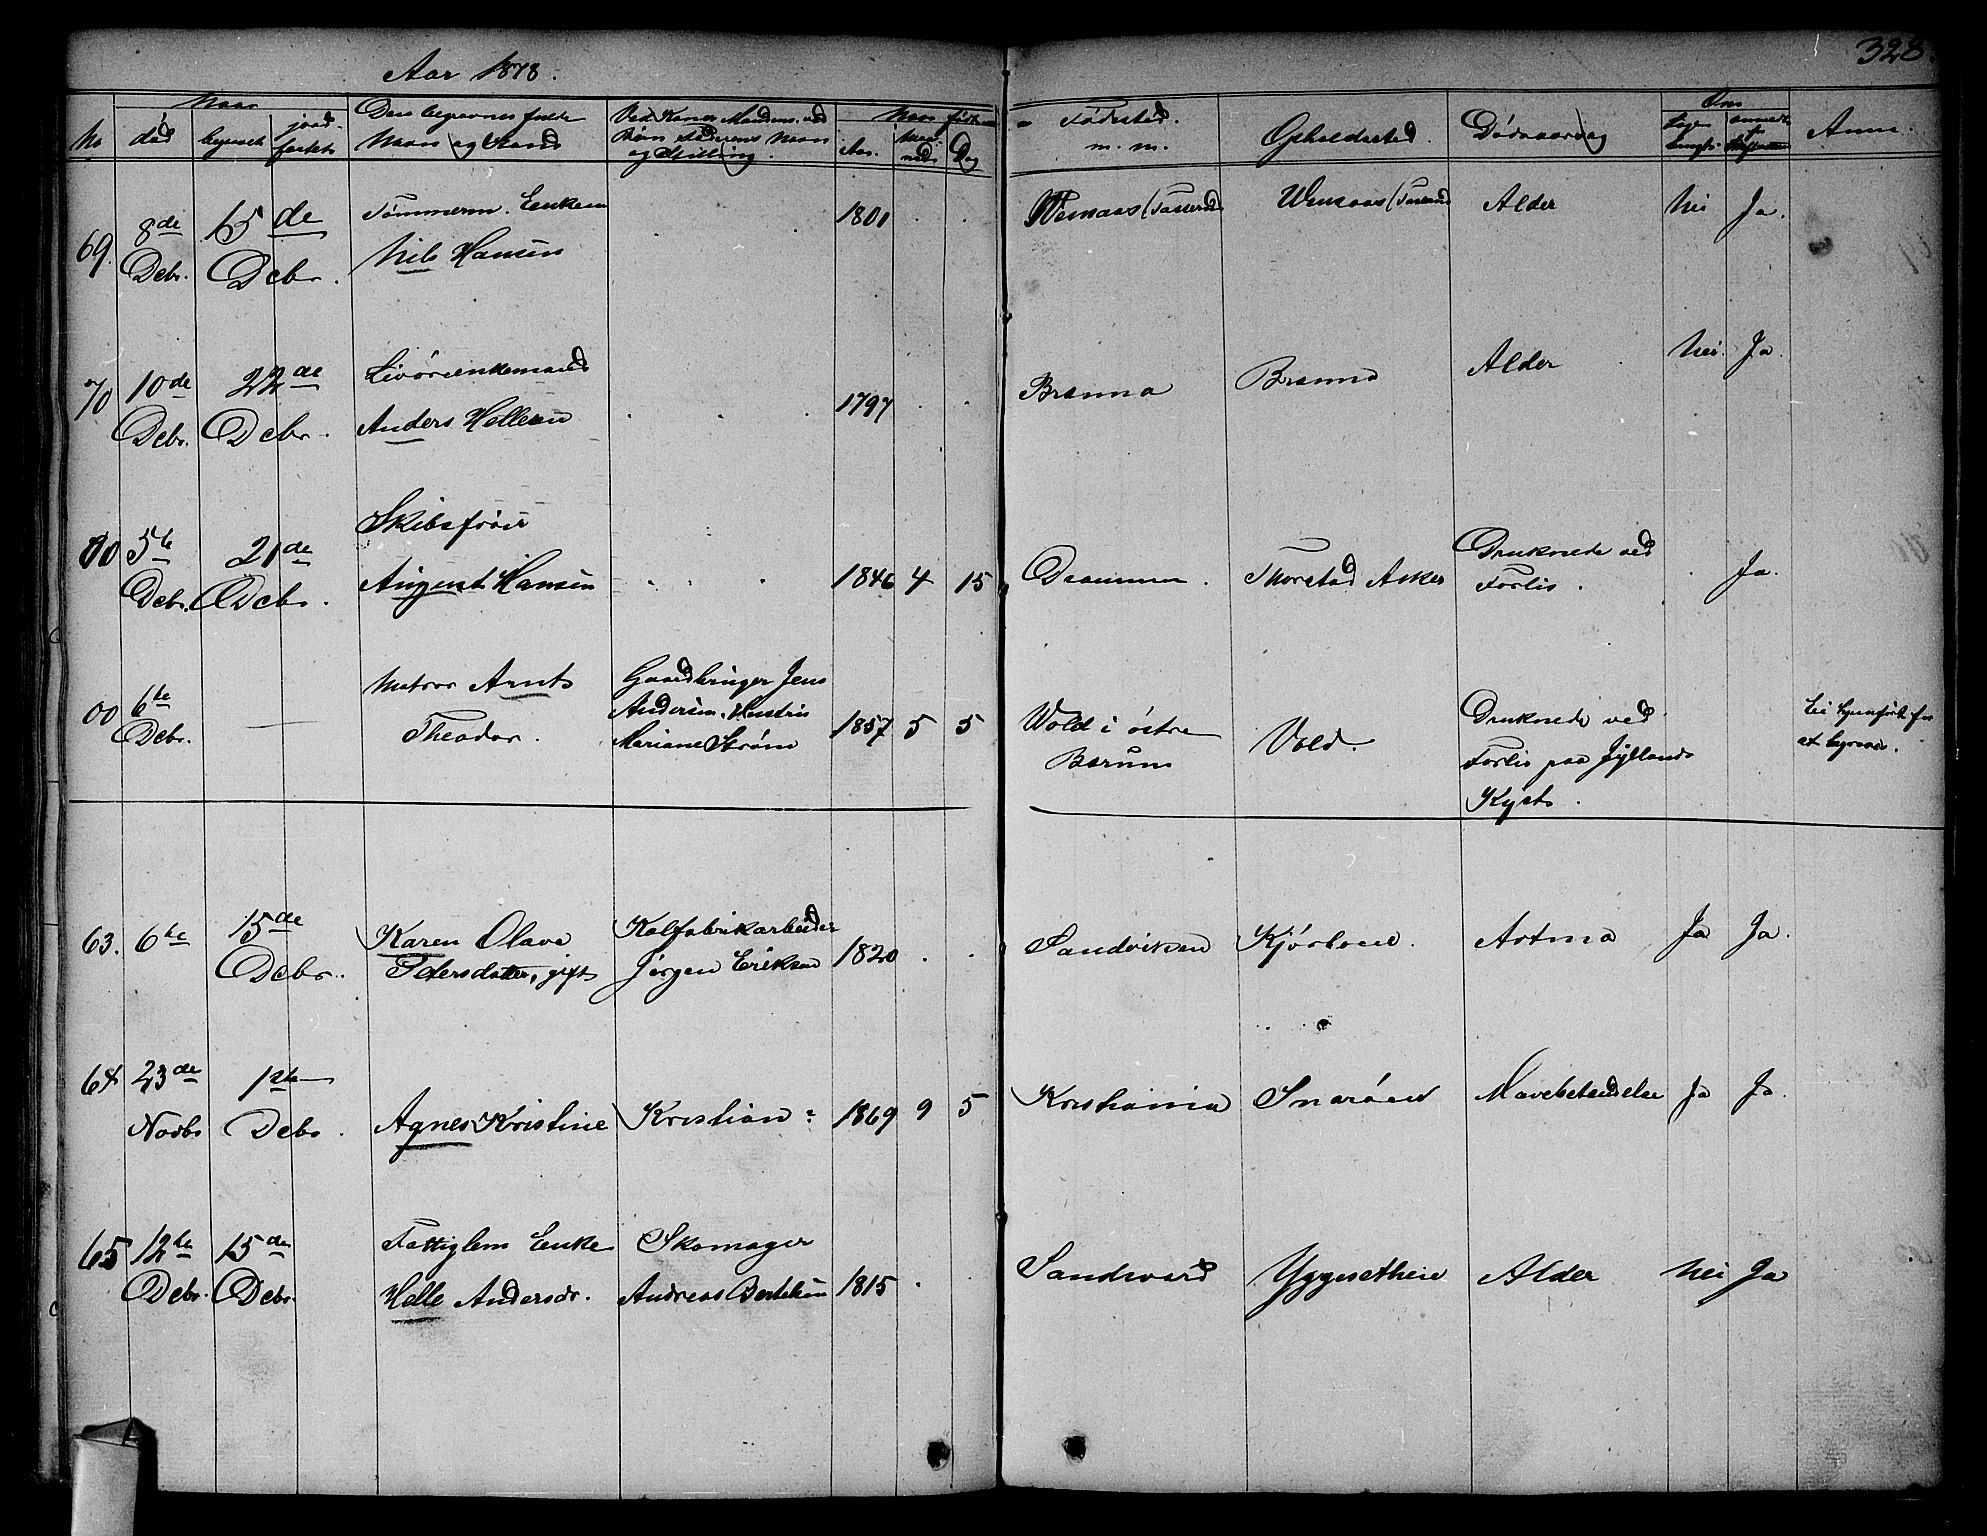 328.
Aar 1878.
No
Naar
død
begravet
jord-
fæstet
Den begravnes fulde
Navn og Stand
Ved Koner Mandens, ved
Børn Faderens Navn
og Stilling.
Naar født
Aar.
Dag
Fødested
m. m.
Opholdssted.
Dødsaarsag
Om
Anm.
69.
8de
Debr.
15de
Debr.
Tømmerm. Enkem
Nils Hansen
1801
Alder
Nei
Ja.
70
10de
Debr.
22de
Debr.
Anders Hellesen
1797
Brenna
Brenna
Alder
Nei.
Ja.
00
5te
Debr.
21de
Debr.
Skibsfører
August Hansen
1846 4 15
Drammen.
Thorstad Asker
Druknede ved
Forlis.
Ja.
00
6te
Debr.
Matros Arnt
Theodor.
Gaardbruger Jens
Andersen, Hustru
Mariane Strøm
1857 5 5
Wold i østre
Bærum
Vold.
Druknede ved
Forlis paa Jyllands
Kyst.
63.
6te
15de
Debr.
Karen Olava
Pedersdatter, gift
Kalkfabrikarbeider
Jørgen Eriksen
1820
Sandviken
Kjørboe.
Astma
Ja
Ja.
64
23de
Novbr
1ste
Debr.
Agnes Kristine
Kristian
1869 9 5
Kristiania
Snarøen
Mavebetændelse
Ja
Ja.
65
12te
Debr.
15de
Debr.
Fattiglem Enke
Helle Andersdr.
Skomager
Andreas Bertelsen
1815
Yggesetheie
Alder
Nei
Ja